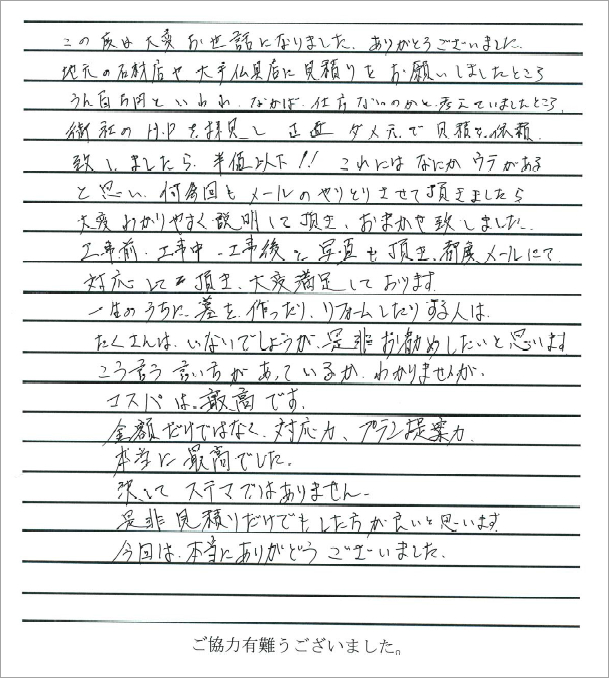 この度は大変お世話になりました。ありがとうございました。
地元の石材店や大手仏具店に見積りをお願いしましたところ
うん百万円といわれ、なかば、仕方ないのかと考えていましたところ、
御社のH.Pを拝見し正直ダメ元で見積を依頼
致しましたら、半値以下!!これにはなにかウラがある
と思い、何多回もメールのやりとりさせて頂きましたら
大変わかりやすく説明して頂き、おまかせ致しました。
工事前・工事中・工事後と写真も頂き、都度メールにて
対応して頂き、大変満足しております。
一生のうちに、墓を、作ったり、リフォームしたりする人は、
たくさんは、いないでしょうが、是非お勧めしたいと思います
こう言う言い方があっているか、わかりませんが、
コスパは最高です。
金額だけではなく、対応力、プラン提案力、
本当に最高でした。
決してステマではありません。
是非見積りだけでもした方が良いと思います。
今回は、本当にありがとうございました。
ご協力有難うございました。